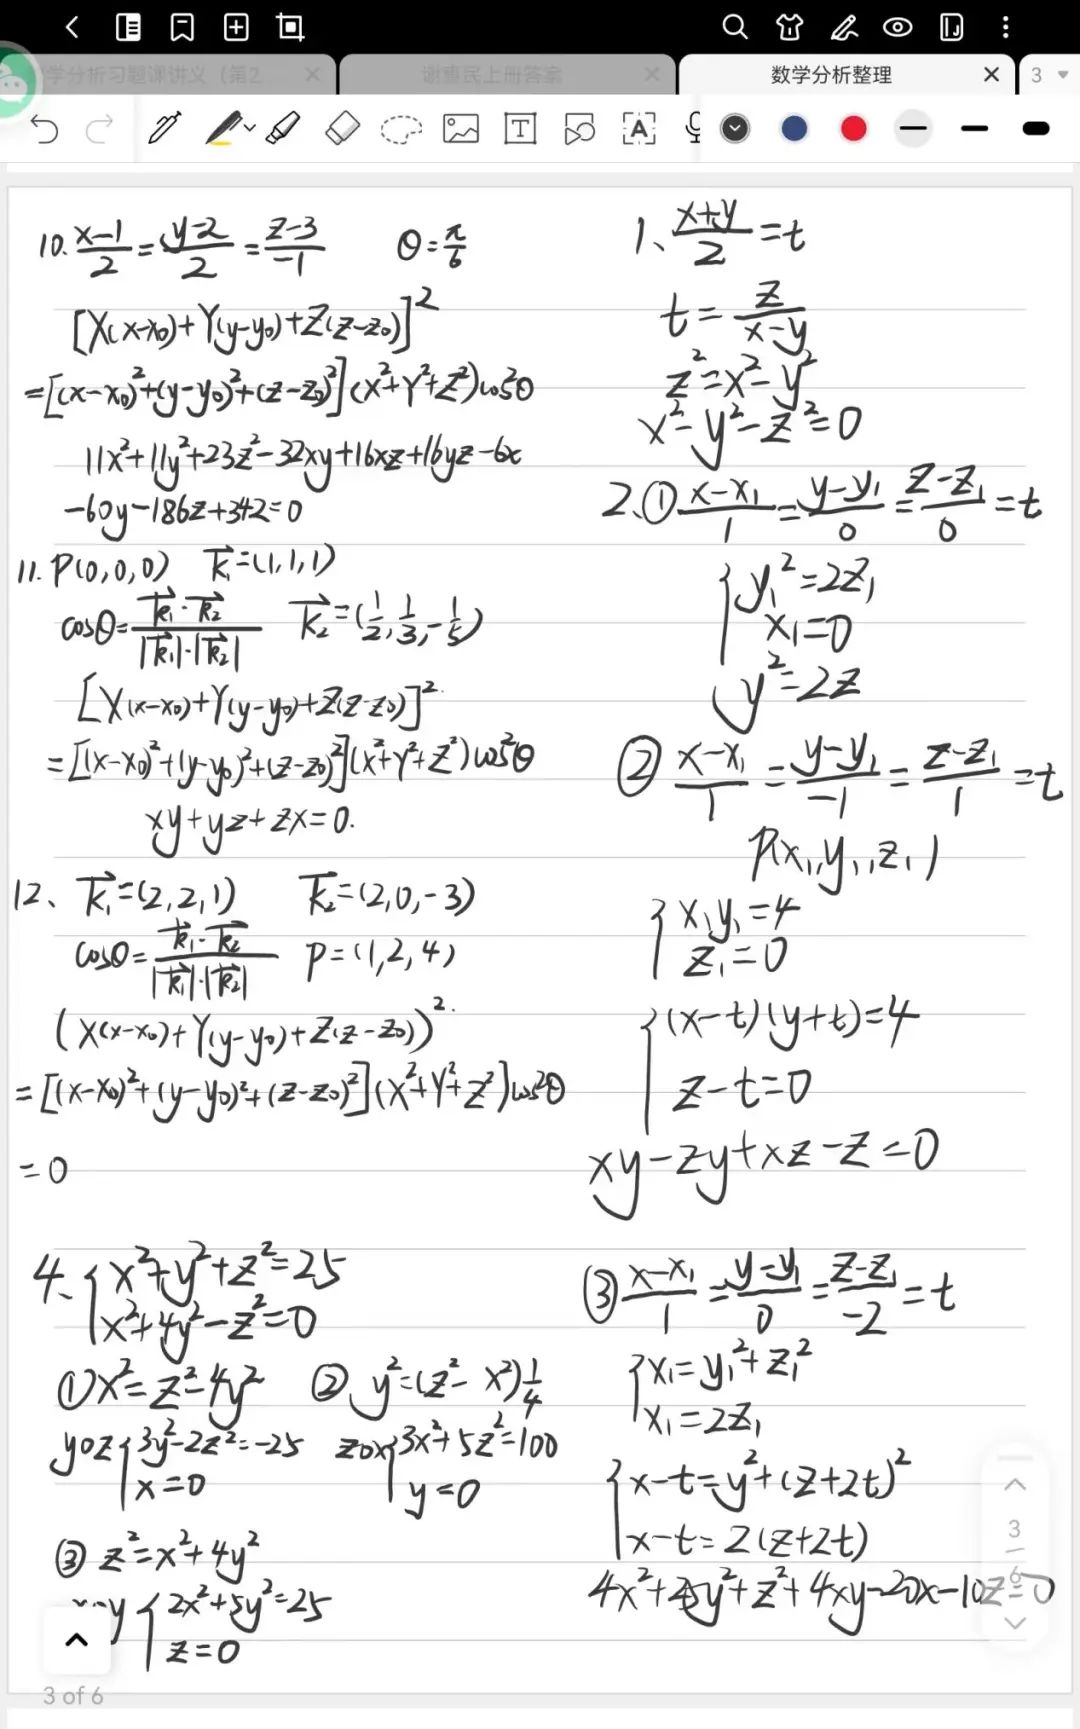 学分析习题课讲义（第2
谢惠民上册答案
数学分析整理
3
10. (x-1)/2 = (y-2)/2 = (z-3)/(-1)  θ = π/6
[X(x-x₀)+Y(y-y₀)+Z(z-z₀)]²
=[(x-x₀)²+(y-y₀)²+(z-z₀)²](X²+Y²+Z²)cos²θ
11x²+11y²+23z²-32xy+16xz+16yz-6x
-60y-186z+342=0
11. P(0,0,0)  k₁=(1,1,1)
cosθ = (k₁·k₂)/(|k₁|·|k₂|)  k₂=(1/2, 1/3, -1/5)
[X(x-x₀)+Y(y-y₀)+Z(z-z₀)]²
=[(x-x₀)²+(y-y₀)²+(z-z₀)²](X²+Y²+Z²)cos²θ
xy+yz+zx=0.
12、k₁=(2,2,1)  k₂=(2,0,-3)
cosθ = (k₁·k₂)/(|k₁|·|k₂|)  P=(1,2,4)
(X(x-x₀)+Y(y-y₀)+Z(z-z₀))²
=[(x-x₀)²+(y-y₀)²+(z-z₀)²](X²+Y²+Z²)cos²θ
=0
4、{x²+y²+z²=25
x²+4y²-z²=0
①x²=z²-4y²  ②y²=(z²-x²)1/4
yoz{3y²-2z²=-25  zox{3x²+5z²=100
x=0  y=0
③ z²=x²+4y²
y{2x²+5y²=25
z=0
1、(x+y)/2 = t
t = z/(x-y)
z²=x²-y²
x²-y²-z²=0
2、① (x-x₁)/1 = (y-y₁)/0 = (z-z₁)/0 = t
{y₁²=2z₁
x₁=0
y²=2z
② (x-x₁)/1 = (y-y₁)/(-1) = (z-z₁)/1 = t
P(x₁,y₁,z₁)
{x₁y₁=4
z₁=0
{(x-t)(y+t)=4
z-t=0
xy-zy+xz-z=0
③ (x-x₁)/1 = (y-y₁)/0 = (z-z₁)/(-2) = t
{x₁=y₁²+z₁²
x₁=2z₁
{x-t=y²+(z+2t)²
x-t=2(z+2t)
3
6
3 of 6